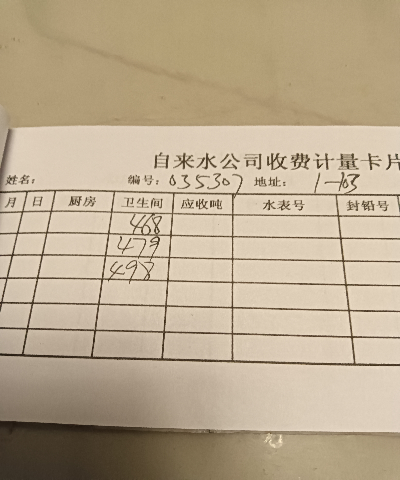 自来水公司收费计量卡片
姓名： 编号：035307 地址： 1-103
月 日 厨房 卫生间 应收吨 水表号 封铅号
468
479
498